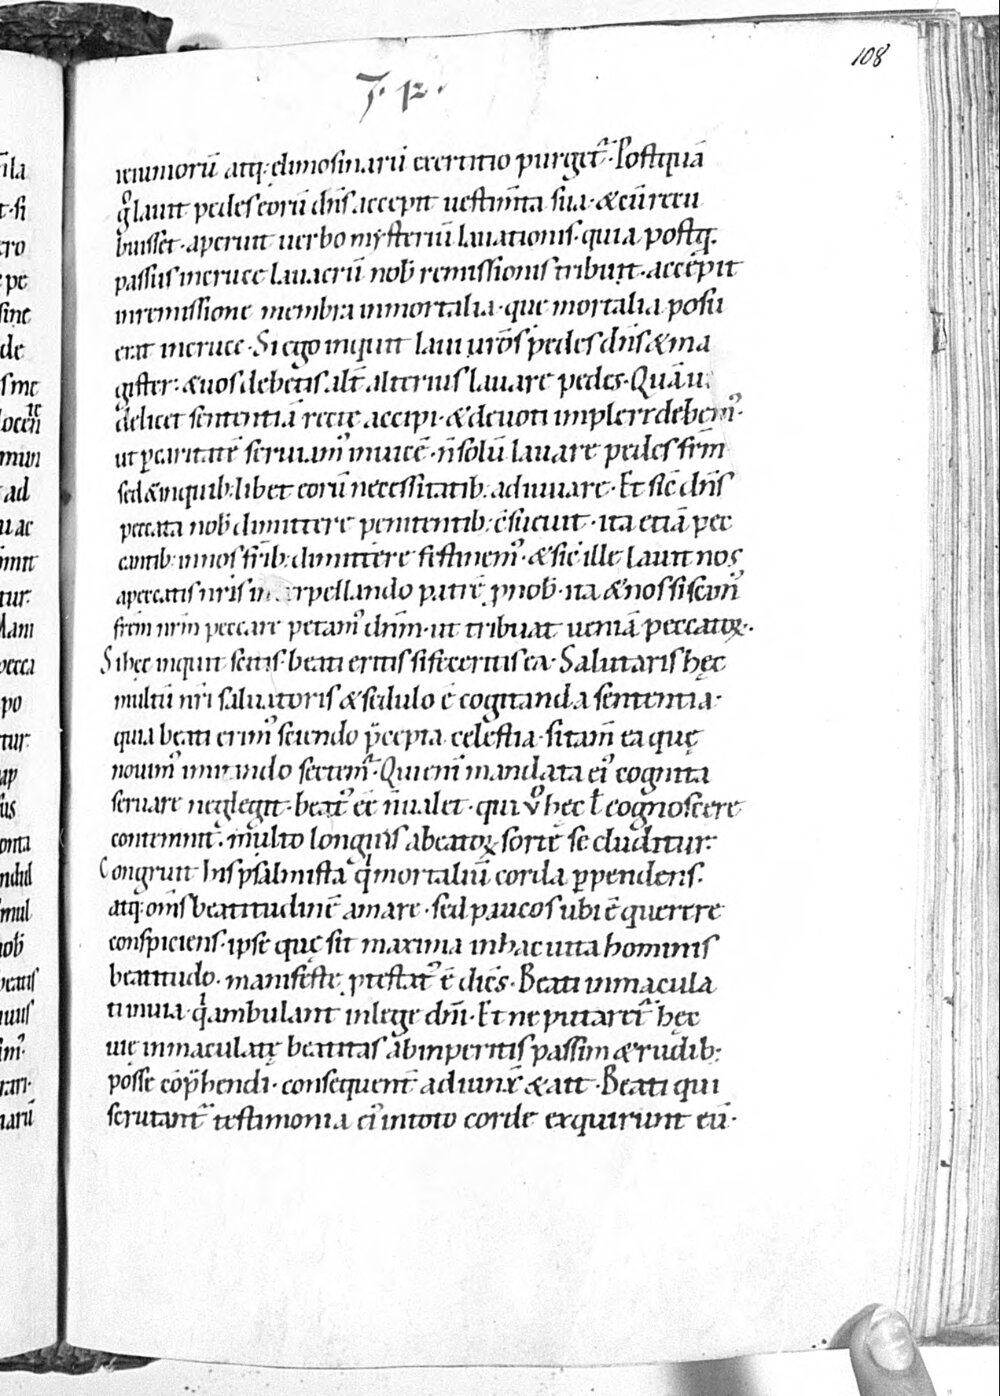 108
ieiuniorū atq; elimosinarū exercitio purget᷑. Postquā
g̊ lauit pedes eorū dn̄s. accepit uestim̄ta sua. & cū recu
buisset. aperuit uerbo mysteriū lauationis. quia postq̄
passus incruce lauacrū nob̄ remissionis tribuit. accepit
inremissione membra inmortalia. que mortalia posu
erat incruce. Si ego inquit laui ur̄os pedes dn̄s & ma
gister: & uos debetis alt̄ alterius lauare pedes. Quā ui
delicet sententiā recte accipi. & deuoti impleri debem᷒.
ut p̱ caritatē seruiam᷒ inuicē. n̄ solū lauare pedes frm̄
sed & inquib; libet eorū necessitatib; adiuuare. Et sic̄ dn̄s
peccata nob̄ dimittere penitentib; c̄sueuit. ita etiā pec
cantib; innos frīb; dimittere festinem᷒. & sic̄ ille lauit nos
apeccatis nr̄is interpellando patrē ꝓ nob̄. ita & nos si scim᷒
frēm nrm̄ peccare petam᷒ dnm̄. ut tribuat ueniā peccatoꝝ.
Si hęc inquit scitis. beati eritis si feceritis ea. Salutaris hęc
multū nr̄i saluatoris & sedulo ē cogitanda sententia.
quia beati erim᷒ sciendo p̄cepta celestia. si tam̄ ea quę
nouim᷒ imitando sectem᷑. Qui eni᷒ mandata ei᷒ cognita
seruare neglegit. beat᷒ eē n̄ ualet. qui v̊ hęc ł cognoscere
contemnit. multo longius abeatoꝝ sorte secluditur.
Congruit his psalmista qͥ mortaliū corda p̱pendens.
atq; om̄s beatitudinē amare. sed paucos ubi ē querere
conspiciens. ipse quę sit maxima inhac uita hominis
beatitudo. manifeste p̱testat᷒ ē dicēs. Beati inmacula
ti inuia. qͥ ambulant inlege dnī. Et ne putaret᷑ hęc
uię inmaculatę beatitas abinperitis passim & rudib;
posse cōp̄hendi. consequent̄ adiunx̄ & ait. Beati qui
scrutant᷑ testimonia ei᷒ intoto corde exquirunt eū.